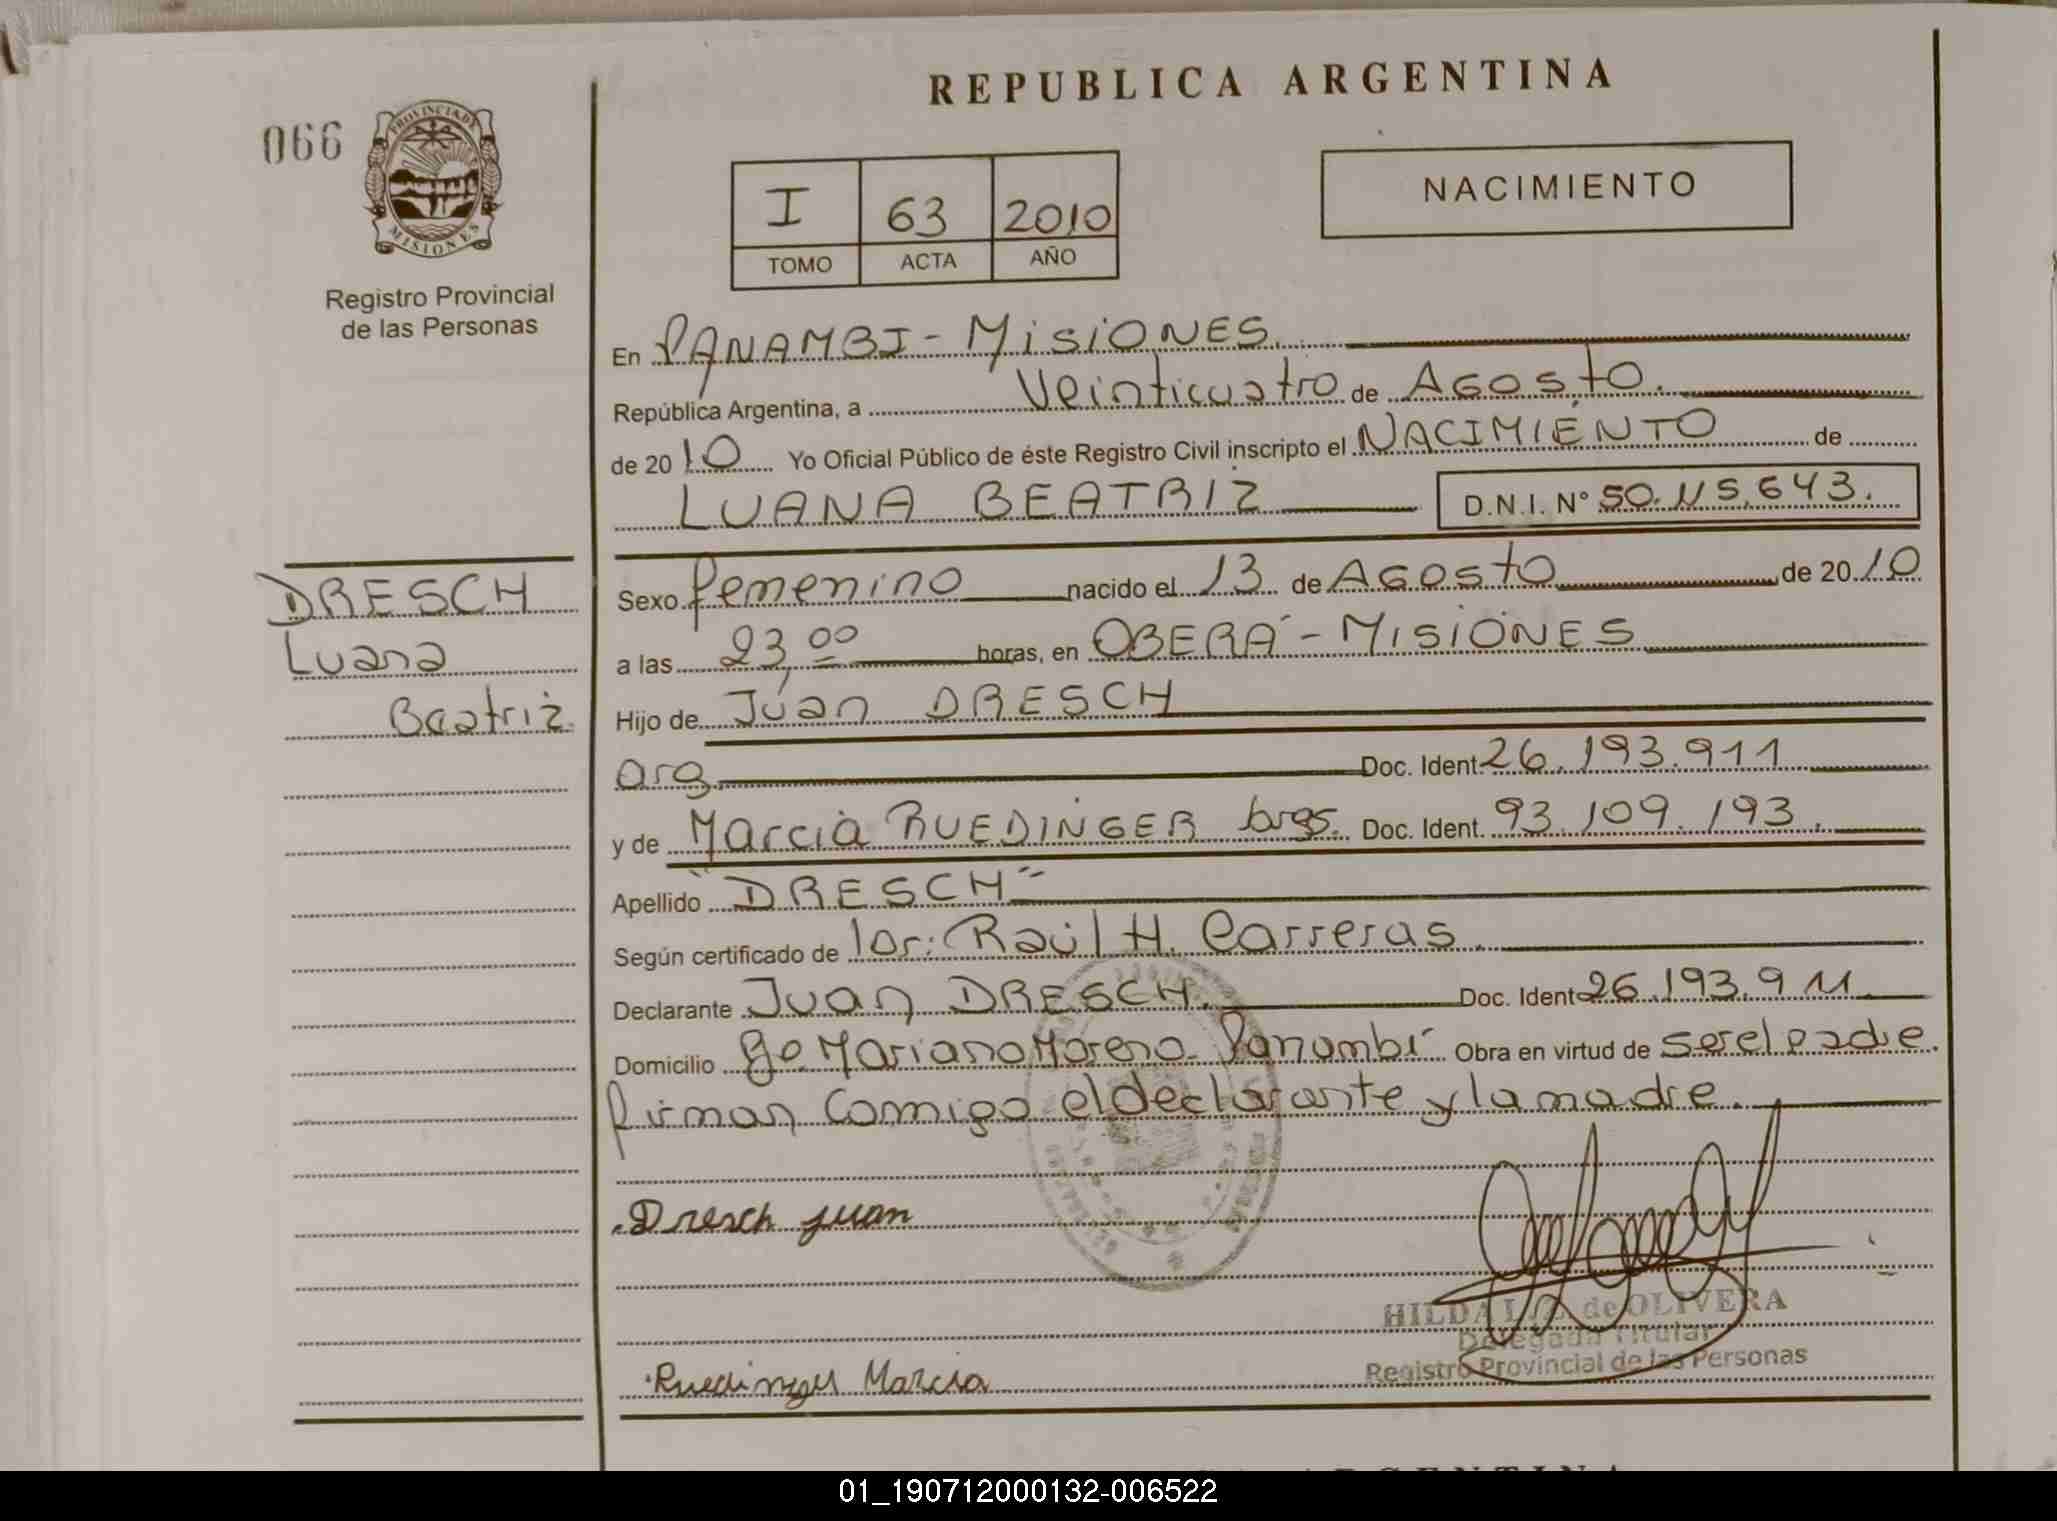 REPUBLICA ARGENTINA
066
PROVINCIA DE
MISIONES
Registro Provincial
de las Personas
I 63 2010
TOMO ACTA AÑO
NACIMIENTO
En PANAMBI - MISIONES
República Argentina, a Veinticuatro de AGosto.
de 2010 Yo Oficial Público de éste Registro Civil inscripto el NACIMIENTO de
LUANA BEATRIZ D.N.I. N° 50.115.643.
DRESCH
Luana
Beatriz
Sexo femenino nacido el 13 de AGosto de 2010
a las 23,00 horas, en OBERÁ - MISIONES
Hijo de Juan DRESCH
arg. Doc. Ident. 26.193.911
y de Marcia RUEDINGER bras. Doc. Ident. 93.109.193.
Apellido "DRESCH"
Según certificado de Raúl H. Carreras
Declarante Juan DRESCH. Doc. Ident. 26.193.911
Domicilio Mariano Moreno - Panambí Obra en virtud de ser el padre.
firman comigo el declarante y la madre.
Dresch Juan
HILDA de OLIVERA
Delegada Titular
Registro Provincial de las Personas
Ruedinger Marcia
01_190712000132-006522